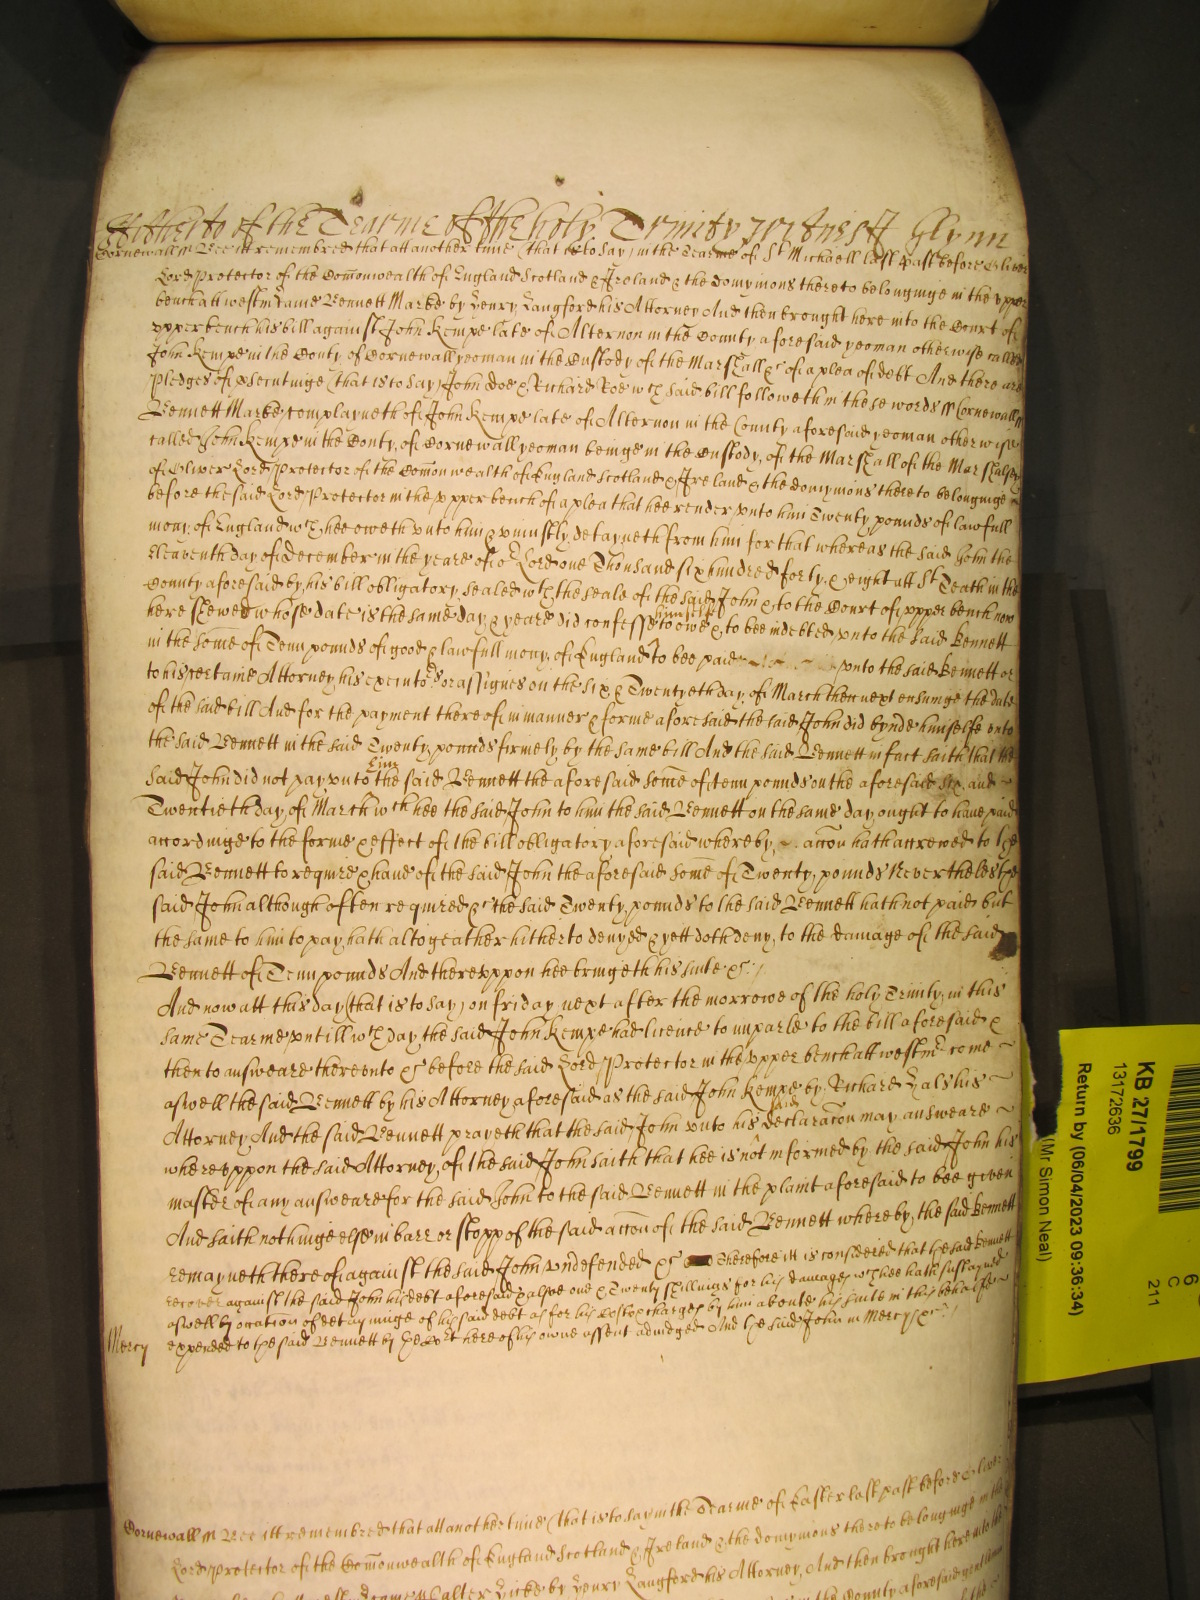 Hitherto of the Tearme of the holy Trinity 1657 Witness J Glynn
Cornewall ss Bee itt remembred that att another time (that is to say) in the Tearme of St Michaell last past before Oliver
Lord Protector of the Comonwealth of England Scotland & Ireland & the domynions thereto belonginge in the upper
bench att westm came Bennett Marke by Henry Langford his Attorney And then brought here into the Court of
upper bench his bill against John Kempe late of Alternon in the County aforesaid yeoman otherwise called
John Kempe in the Conty of Cornewall yeoman in the Custody of the Marshall &c of a plea of debt And there are
Pledges of prosecutinge (that is to say) John Doe & Richard Roe wch said bill followeth in these words ss Cornewall ss
Bennett Marke complayneth of John Kempe late of Alternon in the County aforesaid yeoman otherwise
called John Kempe in the Conty of Cornewall yeoman beinge in the Custody of the Marshall of the Marshalsey
of Oliver Lord Protector of the Comonwealth of England Scotland & Ireland & the domynions thereto belonginge
before the said Lord Protector in the upper bench of a plea that hee render unto him Twenty pounds of lawfull
mony of England wch hee oweth unto him & uniustly detayneth from him for that whereas the said John the
Eleaventh day of December in the yeare of or Lord one Thousand six hundred forty & eight att St Teath in the
County aforesaid by his bill obligatory sealed wth the seale of the said John & to the Court of upper bench now
here shewed whose date is the same day & yeare did confesse himselfe to owe & to bee indebted unto the said Bennett
in the some of Tenn pounds of good & lawfull mony of England to bee paid unto the said Bennett or
to his certaine Attorney his executors or assignes on the six & Twentyeth day of March then next ensuinge the date
of the said bill And for the payment thereof in manner & forme aforesaid the said John did bynde himselfe unto
the said Bennett in the said Twenty pounds firmely by the same bill And the said Bennett in fact saith that the
said John did not pay unto him the said Bennett the aforesaid some of tenn pounds on the aforesaid six and
Twentieth day of March wch hee the said John to him the said Bennett on the same day ought to have paid
accordinge to the forme & effect of the bill obligatory aforesaid whereby accon hath accrewed to the
said Bennett to require & have of the said John the aforesaid some of Twenty pounds Neverthelesse the
said John although often required &c the said Twenty pounds to the said Bennett hath not paid but
the same to him to pay hath altogeather hitherto denyed & yett doth deny to the damage of the said
Bennett of Tenn pounds And thereuppon hee bringeth his suite &c
And now att this day (that is to say) on friday next after the morrowe of the holy Trinity in this
same Tearme untill wch day the said John Kempe had licence to imparle to the bill aforesaid &
then to answeare thereunto &c before the said Lord Protector in the upper bench att westmr come
aswell the said Bennett by his Attorney aforesaid as the said John Kempe by Richard Hals his
Attorney And the said Bennett prayeth that the said John unto his said declaracon may answeare
whereuppon the said Attorney of the said John saith that hee is not informed by the said John his
master of any answeare for the said John to the said Bennett in the plaint aforesaid to bee given
And saith nothinge else in barr or stopp of the said accon of the said Bennett whereby the said Bennett
remayneth thereof against the said John undefended &c Therefore itt is considered that the said Bennett
recover against the said John his debt aforesaid & alsoe one & Twenty shillings for his damages wch hee hath sustayned
aswell by occation of detayninge of his said debt as for his Costs & charges by him aboute his suite in this behalfe
expended to the said Bennett by the Court here of his owne assent adiudged And the said John in Mercy &c
Mercy
Cornewall ss Bee itt remembred that att another time (that is to say) in the Tearme of Easter last past before Oliver
Lord Protector of the Comonwealth of England Scotland & Ireland & the domynions thereto belonginge in the
came Walter Hicks by Henry Langford his Attorney And then brought here into the
the County aforesaid gentleman
KB 27/1799
13172636
Return by (06/04/2023 09:36:34)
(Mr Simon Neal)
6
C
211